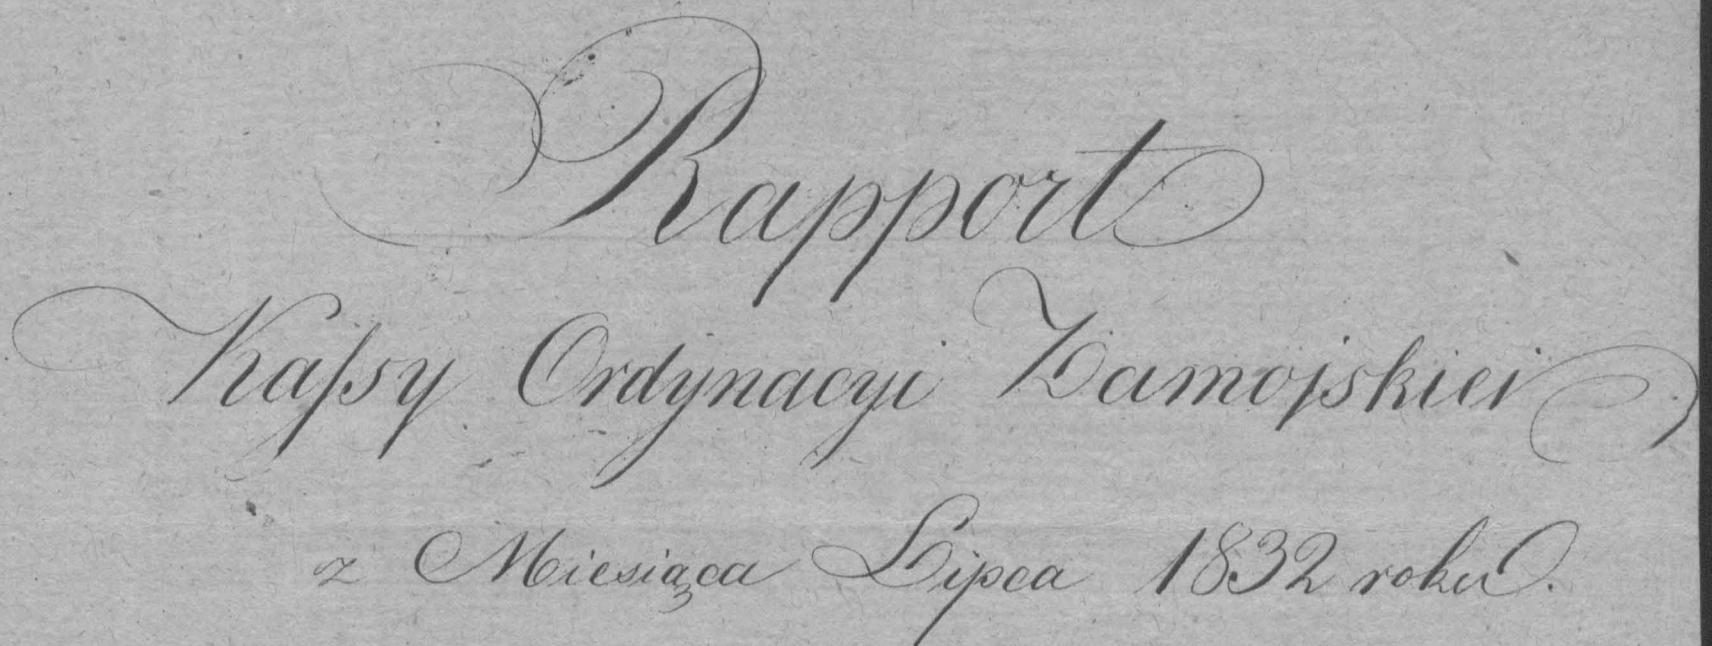 Rapport
Kaſsy Ordynacyi Zamojskiei
z Miesiąca Lipca 1832 roku.